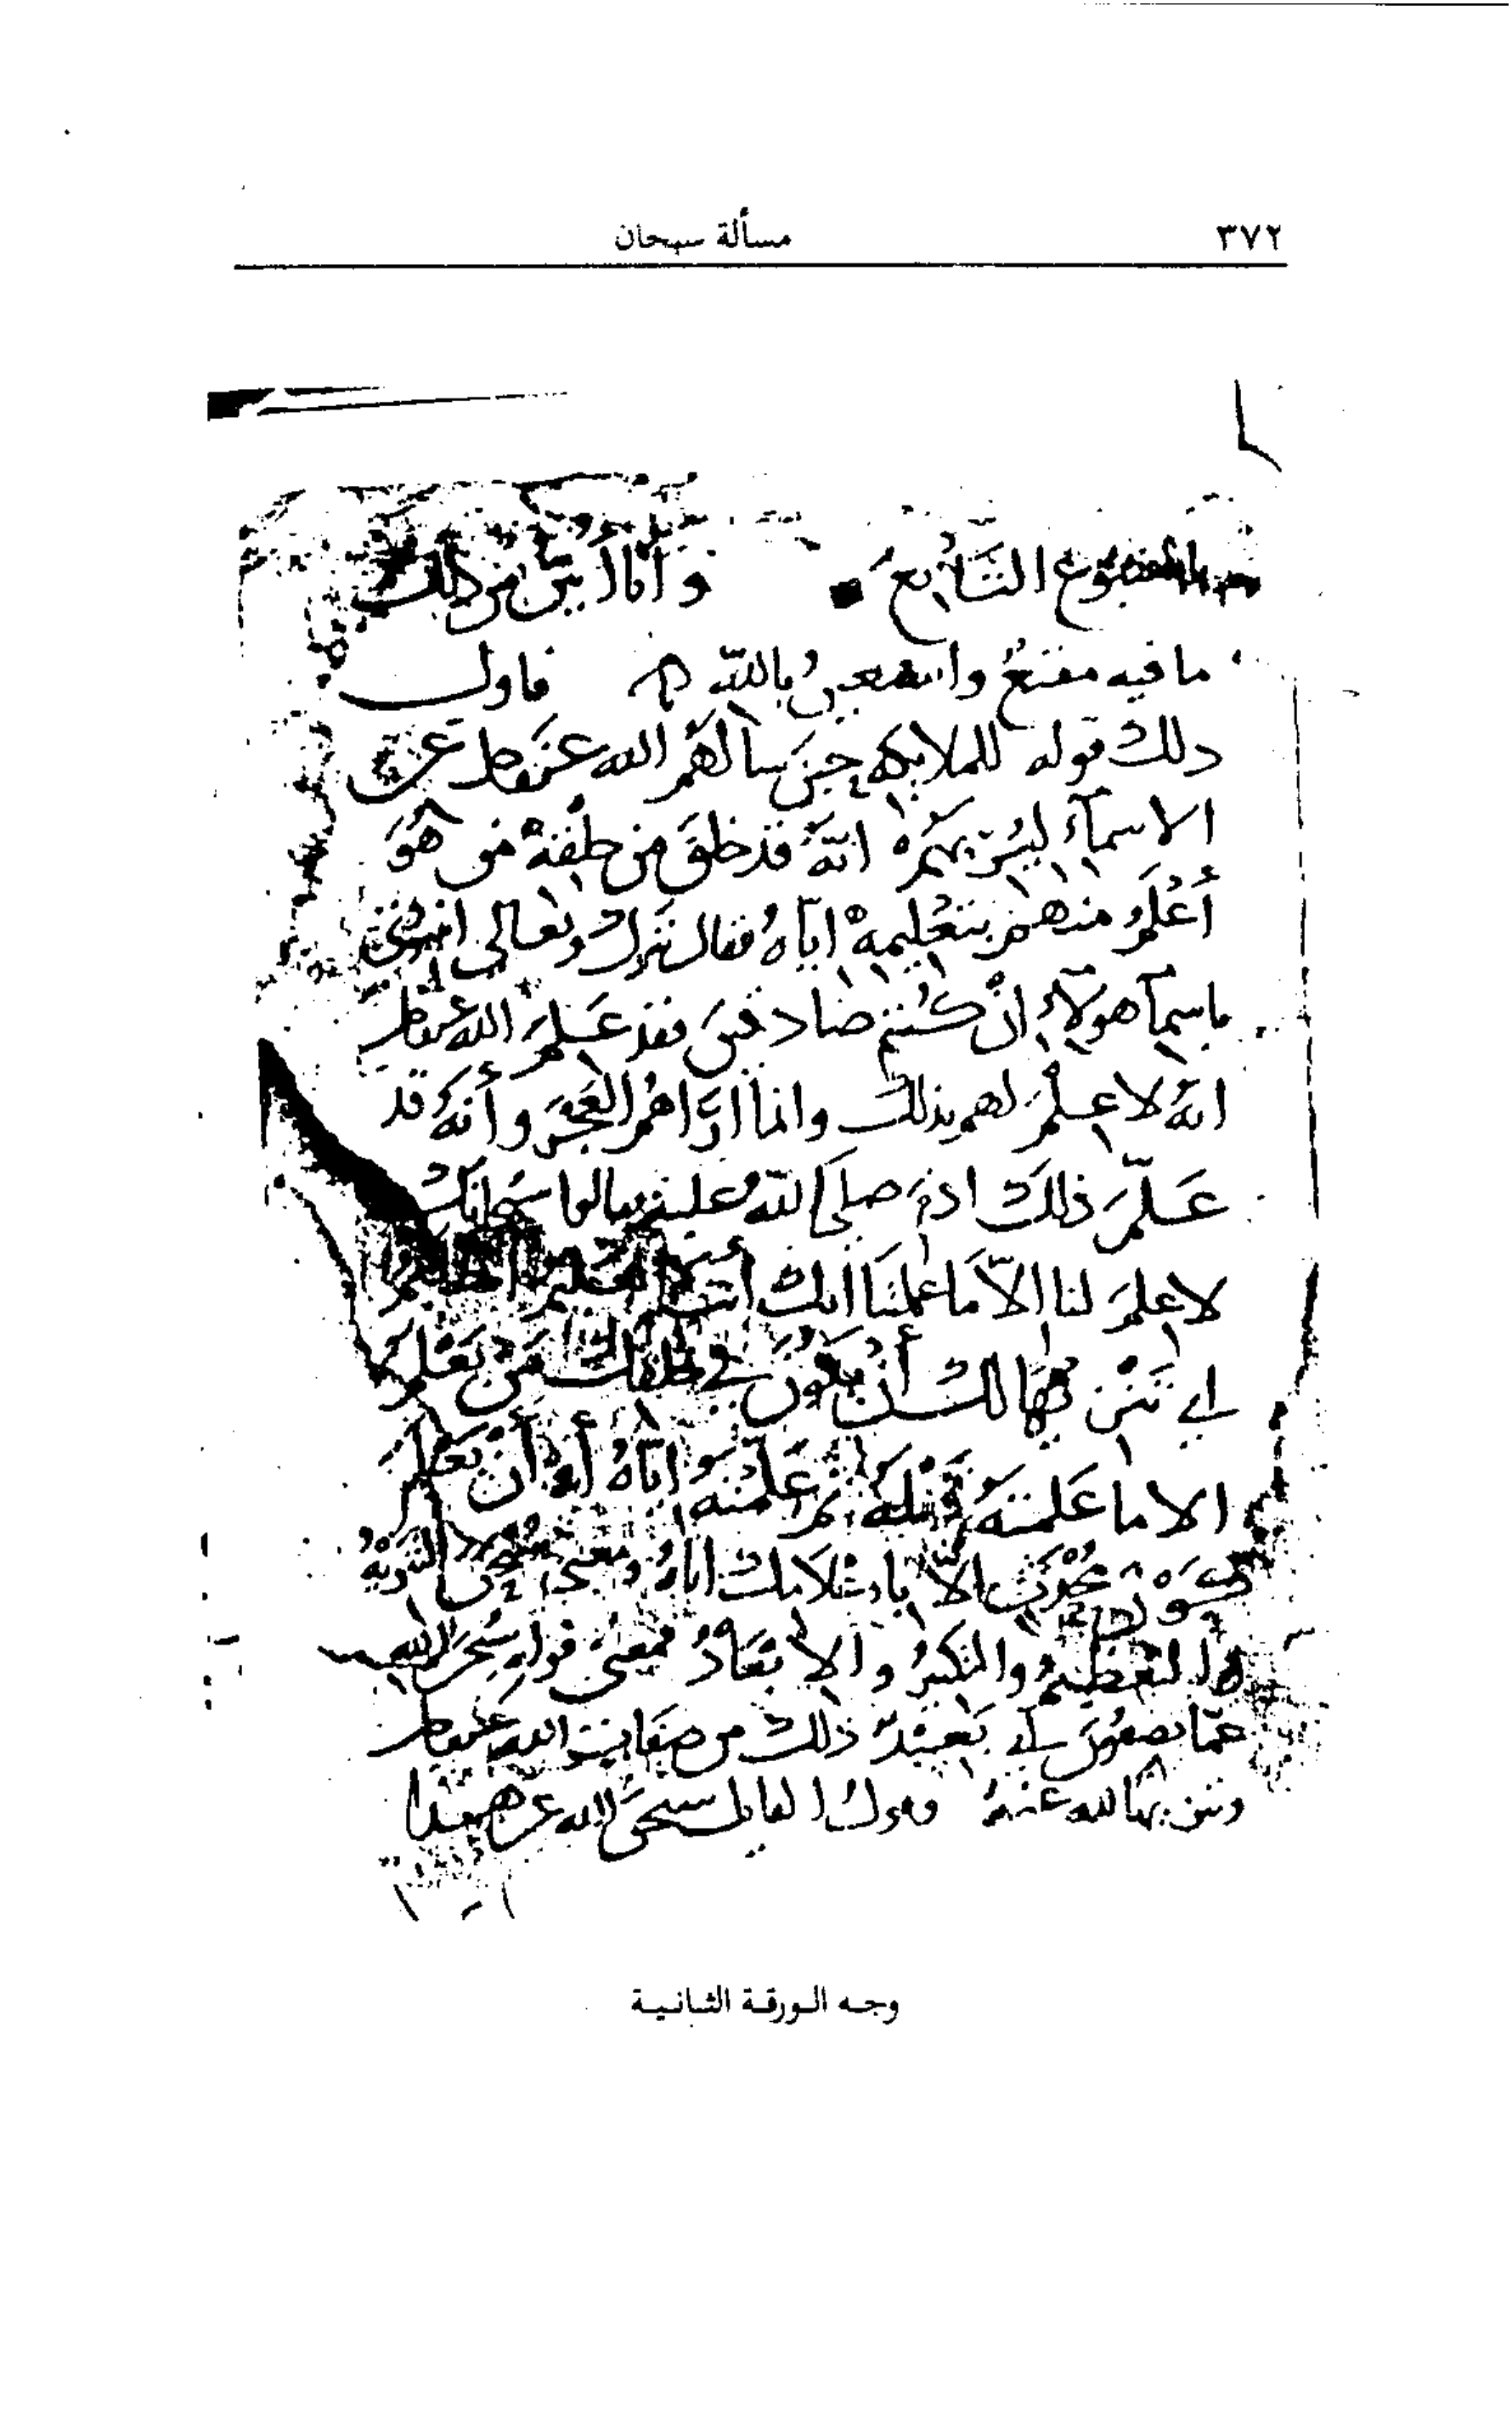 ٣٧٢
مسألة سبحان
التابع وأنا أبين من ذلك
ما فيه مقنع بالله فأول
ذلك قوله للملايكة حين سألهم الله عن
الاسمآء ليُريهم أنه قد خلق من خلقه من هو
أعلم منهم بتعليمه اياه فقال تبرك وتعالى
باسمآ هولآء ان كنتم صادقين فقد علم الله
انه لا علم لهم بذلك وانما اراهم العجز وأنه قد
علّم ذلك ادم صلى الله عليه فقالوا سبحانك
لا علم لنا الاّ ما علمتنا انك أنت العليم الحكيم
اي تنزيها لك أن يكون في خلقك من يعلم
الا ما علمته ثم علمته اياه أو أن يعلم
الاّ اياه ومعنى التنزيه
التعظيم والتكبير والابعاد فمعنى قوله سبحن الله
عمّا يصفون اي تبعيد ذلك من صفات الله
وتنزيها لله عنه وقول القايل سبحن الله عن هذا
وجه الورقة الثانية